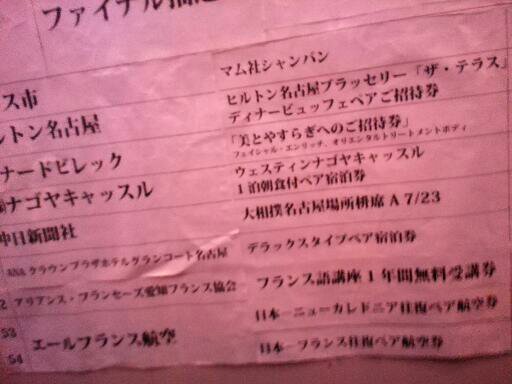 ファイナル抽選
マム社シャンパン
ス市
ヒルトン名古屋ブラッセリー「ザ・テラス」
ディナービュッフェペアご招待券
ルトン名古屋
「美とやすらぎへのご招待券」
フェイシャル・エンリッチ、オリエンタルトリートメントボディ
ナードビレック
ウェスティンナゴヤキャッスル
1泊朝食付ペア宿泊券
ナゴヤキャッスル
大相撲名古屋場所桝席A 7/23
中日新聞社
デラックスタイプペア宿泊券
ANAクラウンプラザホテルグランコート名古屋
フランス語講座1年間無料受講券
2 アリアンス・フランセーズ愛知フランス協会
日本―ニューカレドニア往復ペア航空券
53
エールフランス航空
日本―フランス往復ペア航空券
54